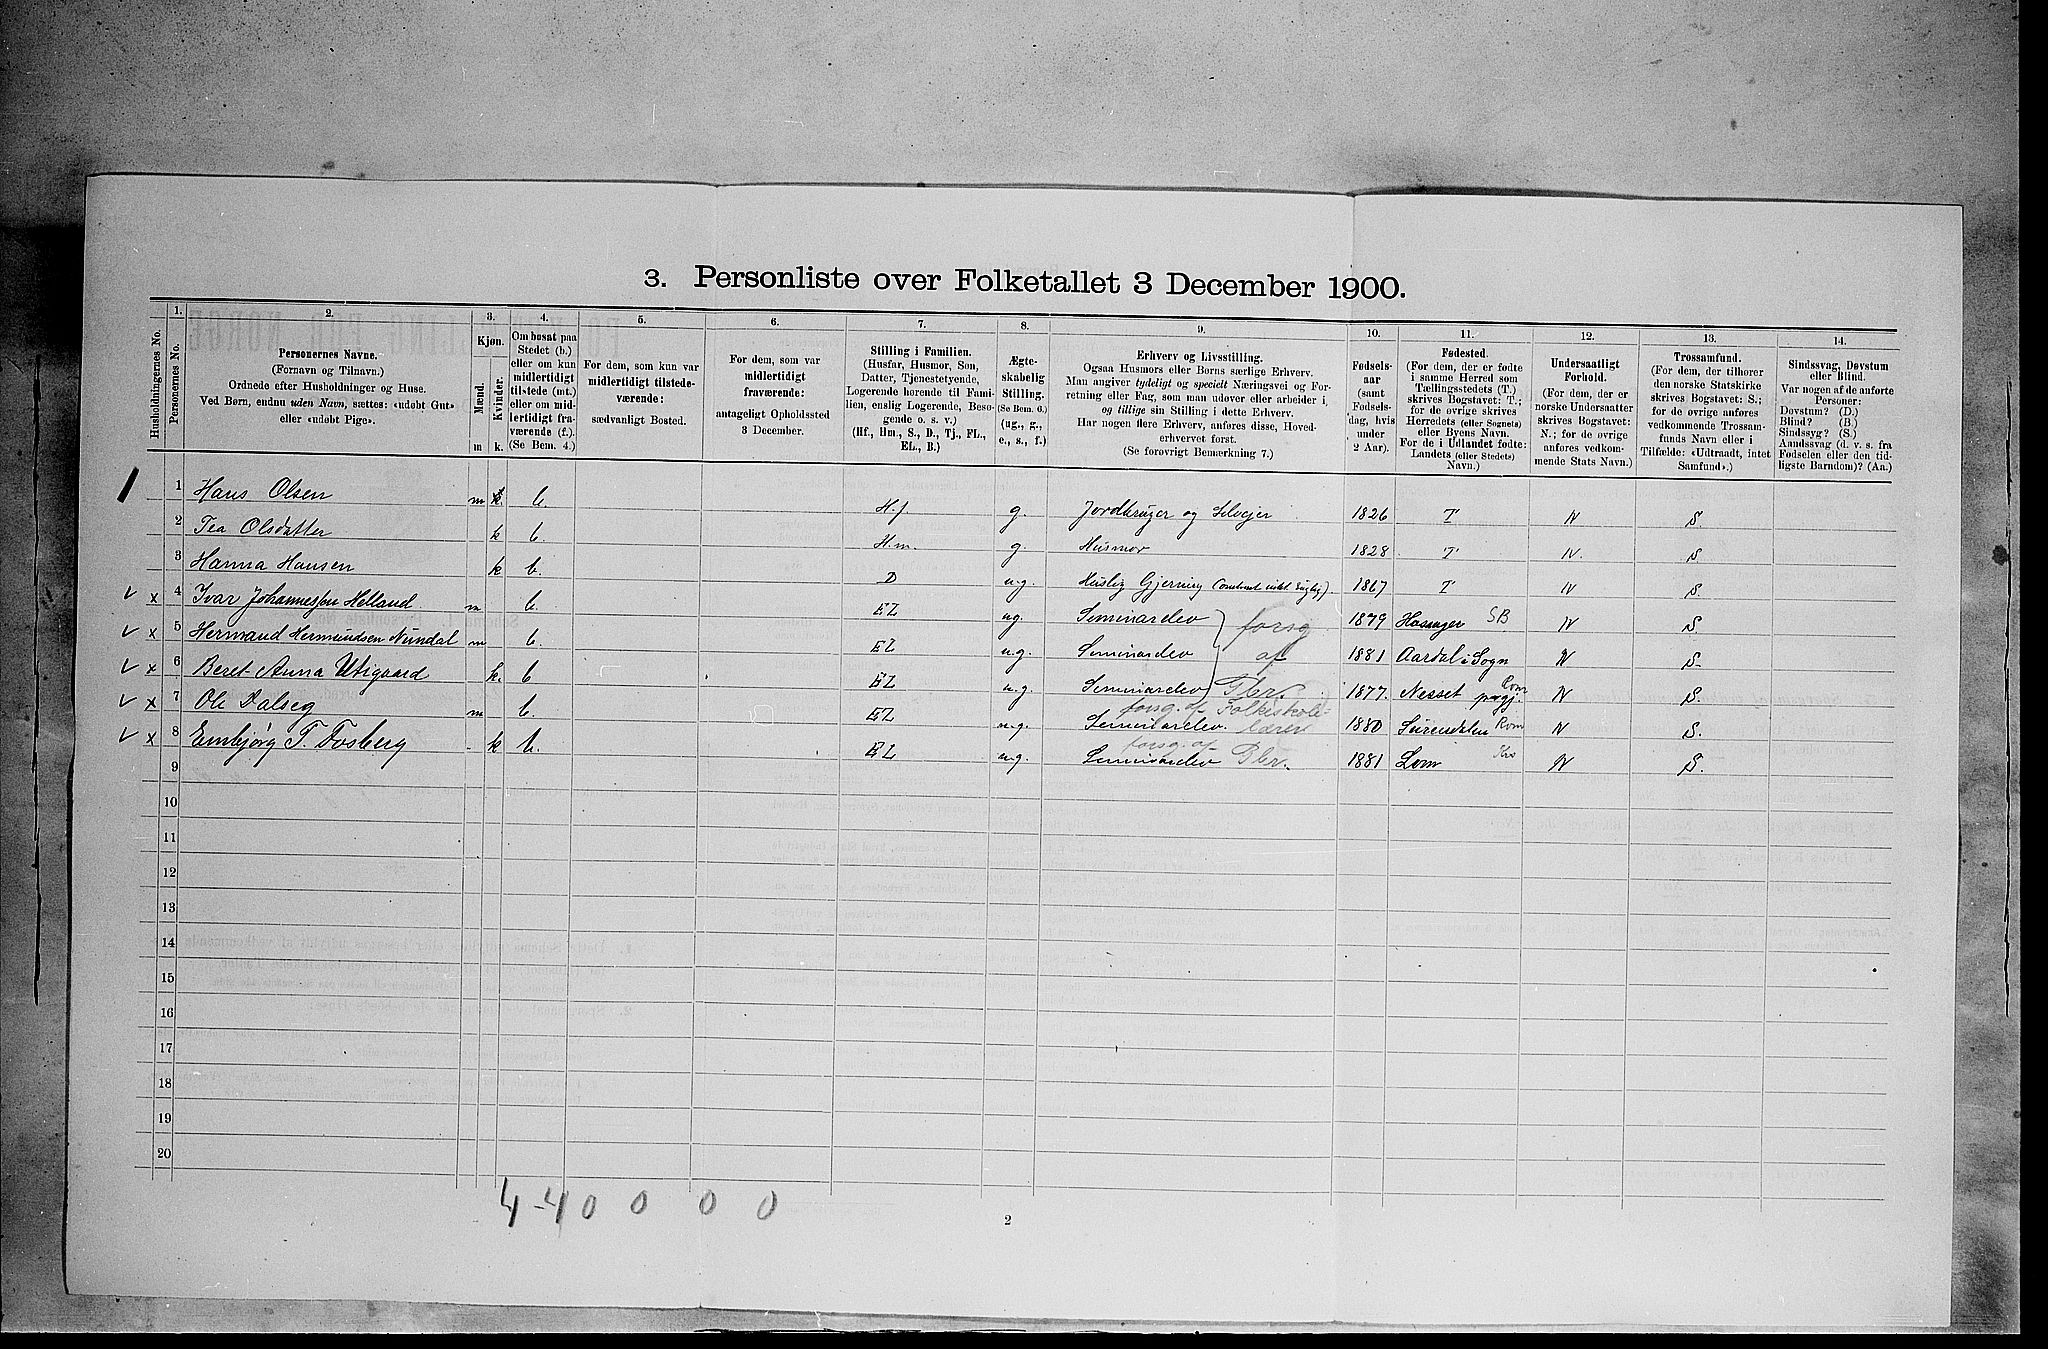 3. Personliste over Folketallet 3 December 1900.
Husholdningernes No.
1.
Personernes No.
2.
Personernes Navne.
(Fornavn og Tilnavn.)
Ordnede efter Husholdninger og Huse.
Ved Børn, endnu uden Navn, sættes: «udøbt Gut»
eller «udøbt Pige».
3.
Kjøn.
Mænd.
Kvinder.
m
k.
4.
Om bosat paa
Stedet (b.)
eller om kun
midlertidigt
tilstede (mt.)
eller om mid-
lertidigt fra-
værende (f.).
(Se Bem. 4.)
5.
For dem, som kun var
midlertidigt tilstede-
værende:
sædvanligt Bosted.
6.
For dem, som var
midlertidigt
fraværende:
antageligt Opholdssted
3 December.
7.
Stilling i Familien.
(Husfar, Husmor, Søn,
Datter, Tjenestetyende,
Logerende hørende til Fami-
lien, enslig Logerende, Besø-
gende o. s. v.)
(Hf., Hm., S., D., Tj., FL.,
EL., B.)
8.
Ægte-
skabelig
Stilling.
(Se Bem. 6.)
(ug., g.,
e., s., f.)
9.
Erhverv og Livsstilling.
Ogsaa Husmors eller Børns særlige Erhverv.
Man angiver tydeligt og specielt Næringsvei og For-
retning eller Fag, som man udøver eller arbeider i,
og tillige sin Stilling i dette Erhverv.
Har nogen flere Erhverv, anføres disse, Hoved-
erhvervet først.
(Se forøvrigt Bemærkning 7.)
10.
Fødsels-
aar
(samt
Fødsels-
dag, hvis
under
2 Aar).
11.
Fødested.
(For dem, der er fødte
i samme Herred som
Tællingsstedets (T.)
skrives Bogstavet: T.;
for de øvrige skrives
Herredets (eller Sognets)
eller Byens Navn.
For de i Udlandet fødte:
Landets (eller Stedets)
Navn.)
12.
Undersaatligt
Forhold.
(For dem, der er
norske Undersaatter
skrives Bogstavet:
N.; for de øvrige
anføres vedkom-
mende Stats Navn.)
13.
Trossamfund.
(For dem, der tilhører
den norske Statskirke
skrives Bogstavet: S.;
for de øvrige anføres
vedkommende Trossam-
funds Navn eller i
Tilfælde: «Udtraadt, intet
Samfund».)
14.
Sindssvag, Døvstum
eller Blind.
Var nogen af de anførte
Personer:
Døvstum? (D.)
Blind? (B.)
Sindssyg? (S.)
Aandssvag (d. v. s. fra
Fødselen eller den tid-
ligste Barndom)? (Aa.)
1 1 Hans Olsen m k. b. H.f g. Jordbruger og Selvejer 1826 T N S.
2 Tea Olsdatter k b. H.m. g. Husmor 1828 T N. S
3 Hanna Hansen k b. D u.g. Huslig Gjerning 1867 T N S.
v x 4 Ivar Johannessen Helland. m b. EL ug. Seminarelev } forsg. 1879 SB N S.
v x 5 Hermand Hermundsen Nundal m b. EL u.g. Seminarelev af 1881 Aardal i Sogn N S.
v x 6 Beret-Anna Utigaard k. b EL u.g. Seminarelev 1877. Nesset prgj. Rom N S.
forsg. af Folkeskole-
v x 7 Ole Dalseg m b. EL u.g. Seminarelev. lærer 1880 Surendalen Rom N S.
forsg. af
v x 8 Embjørg T. Fosberg k b. EL u.g. Seminarelev 1881 Lom Kra N S.
9
10
11
12
13
14
15
16
17
18
19
20
4-4 0 0 0 0
2